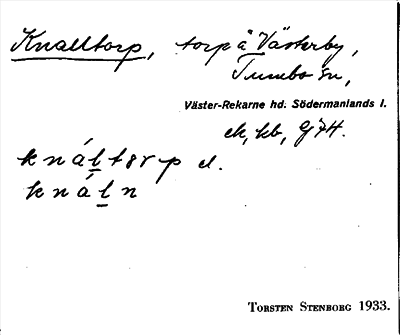 Knalltorp, torp å Västerby,
Tumbo sn,
Väster-Rekarne hd. Södermanlands l.
ek, kb, GK.
knáḻtɵrp el.
knáḻn
Torsten Stenborg 1933.